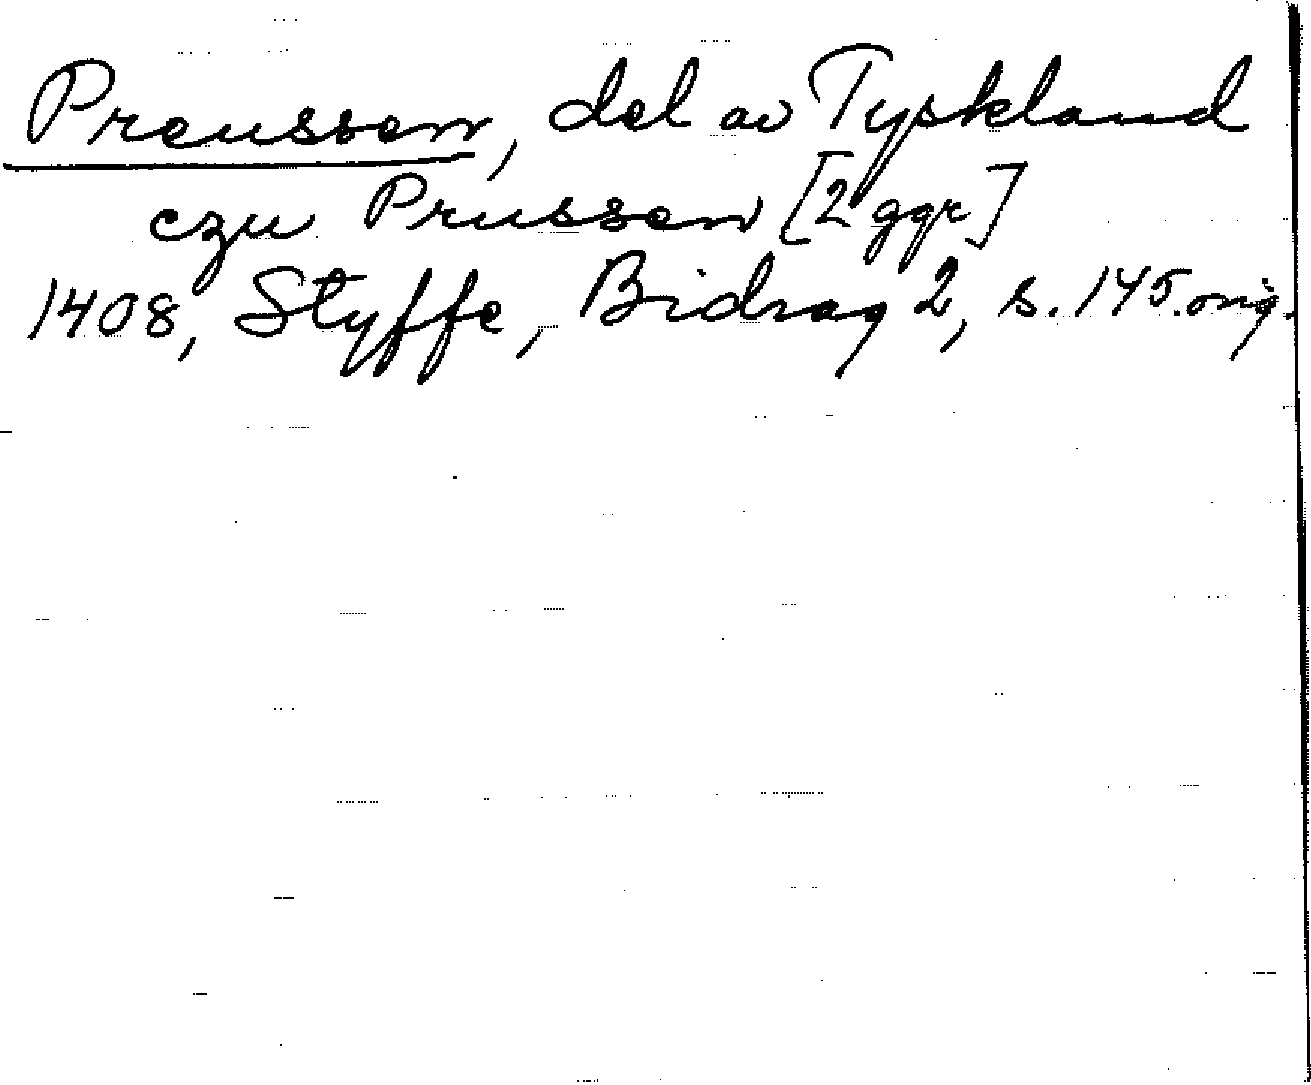 Preussen, del av Tyskland
czu Prussen [2 ggr]
1408, Styffe, Bidrag 2, s. 145. orig.